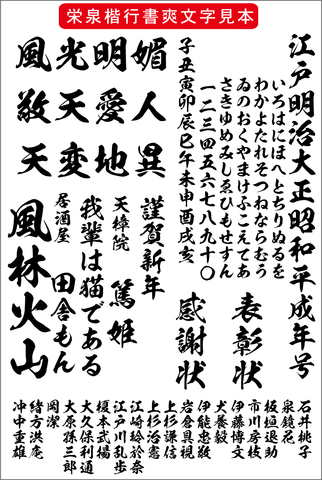 栄泉楷行書爽文字見本
江戸明治大正昭和平成年号
いろはにほへとちりぬるを
わかよたれそつねならむう
ゐのおくやまけふこえてあ
さきゆめみしゑひもせすん
一二三四五六七八九十〇
子丑寅卯辰巳午未申酉戌亥
媚人異
明愛地
光天変
風敬天
表彰状
感謝状
謹賀新年
天樟院
篤姫
我輩は猫である
居酒屋
田舎もん
風林火山
石井桃子
泉鏡花
板垣退助
市川房枝
伊藤博文
犬養毅
伊能忠敬
岩倉具視
上杉謙信
上杉治憲
江崎玲於奈
江戸川乱歩
榎本武揚
大久保利通
大原孫三郎
岡潔
緒方洪庵
沖中重雄